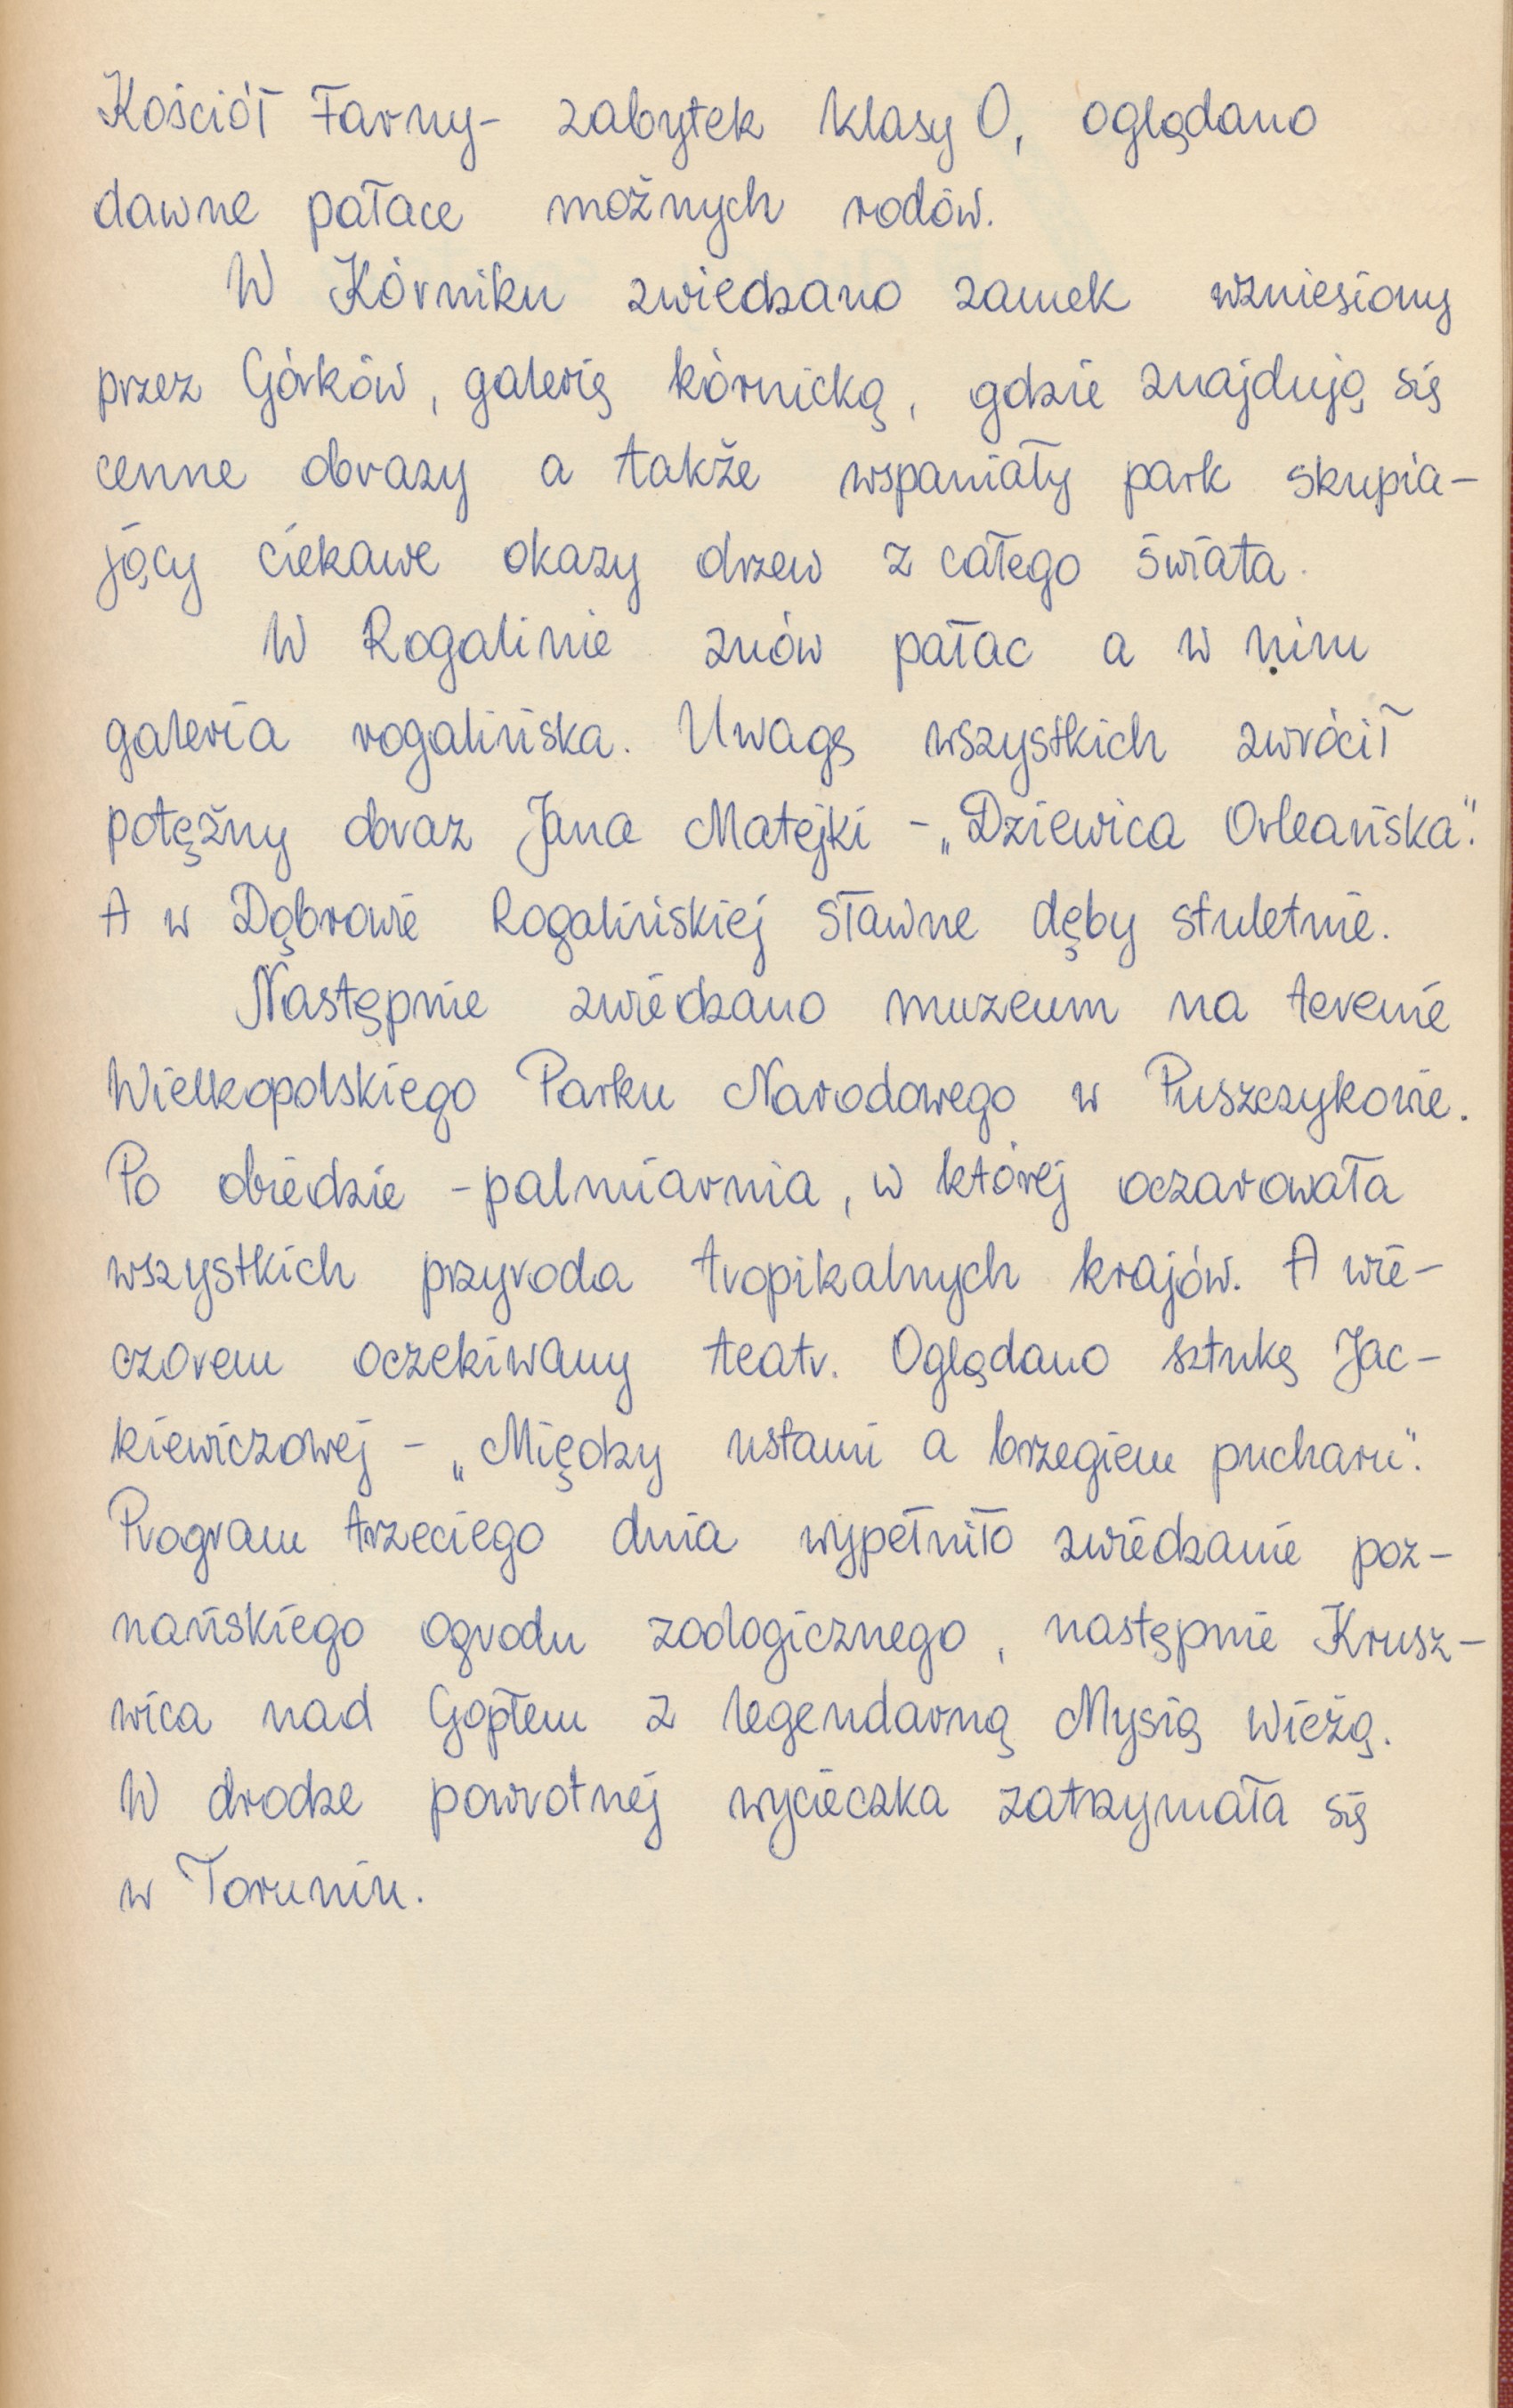 Kościół Farny- zabytek klasy 0, oglądano
dawne pałace możnych rodów.
W Kórniku zwiedzano zamek wzniesiony
przez Górków, galerię kórnicką, gdzie znajdują się
cenne obrazy a także wspaniały park skupia-
jący ciekawe okazy drzew z całego świata.
W Rogalinie znów pałac a w nim
galeria rogalińska. Uwagę wszystkich zwrócił
potężny obraz Jana Matejki - „Dziewica Orleańska".
A w Dąbrowie Rogalińskiej sławne dęby stuletnie.
Następnie zwiedzano muzeum na terenie
Wielkopolskiego Parku Narodowego w Puszczykowie.
Po obiedzie - palmiarnia, w której oczarowała
wszystkich przyroda tropikalnych krajów. A wie-
czorem oczekiwany teatr. Oglądano sztukę Jac-
kiewiczowej - „Między ustami a brzegiem pucharu".
Program trzeciego dnia wypełniło zwiedzanie poz-
nańskiego ogrodu zoologicznego, następnie Krusz-
wica nad Gopłem z legendarną Mysią Wieżą.
W drodze powrotnej wycieczka zatrzymała się
w Toruniu.